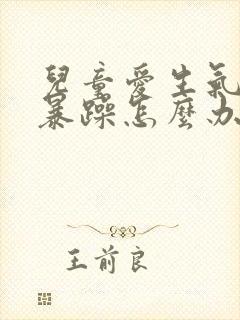 兒童愛生氣
暴躁怎麼办
王前良